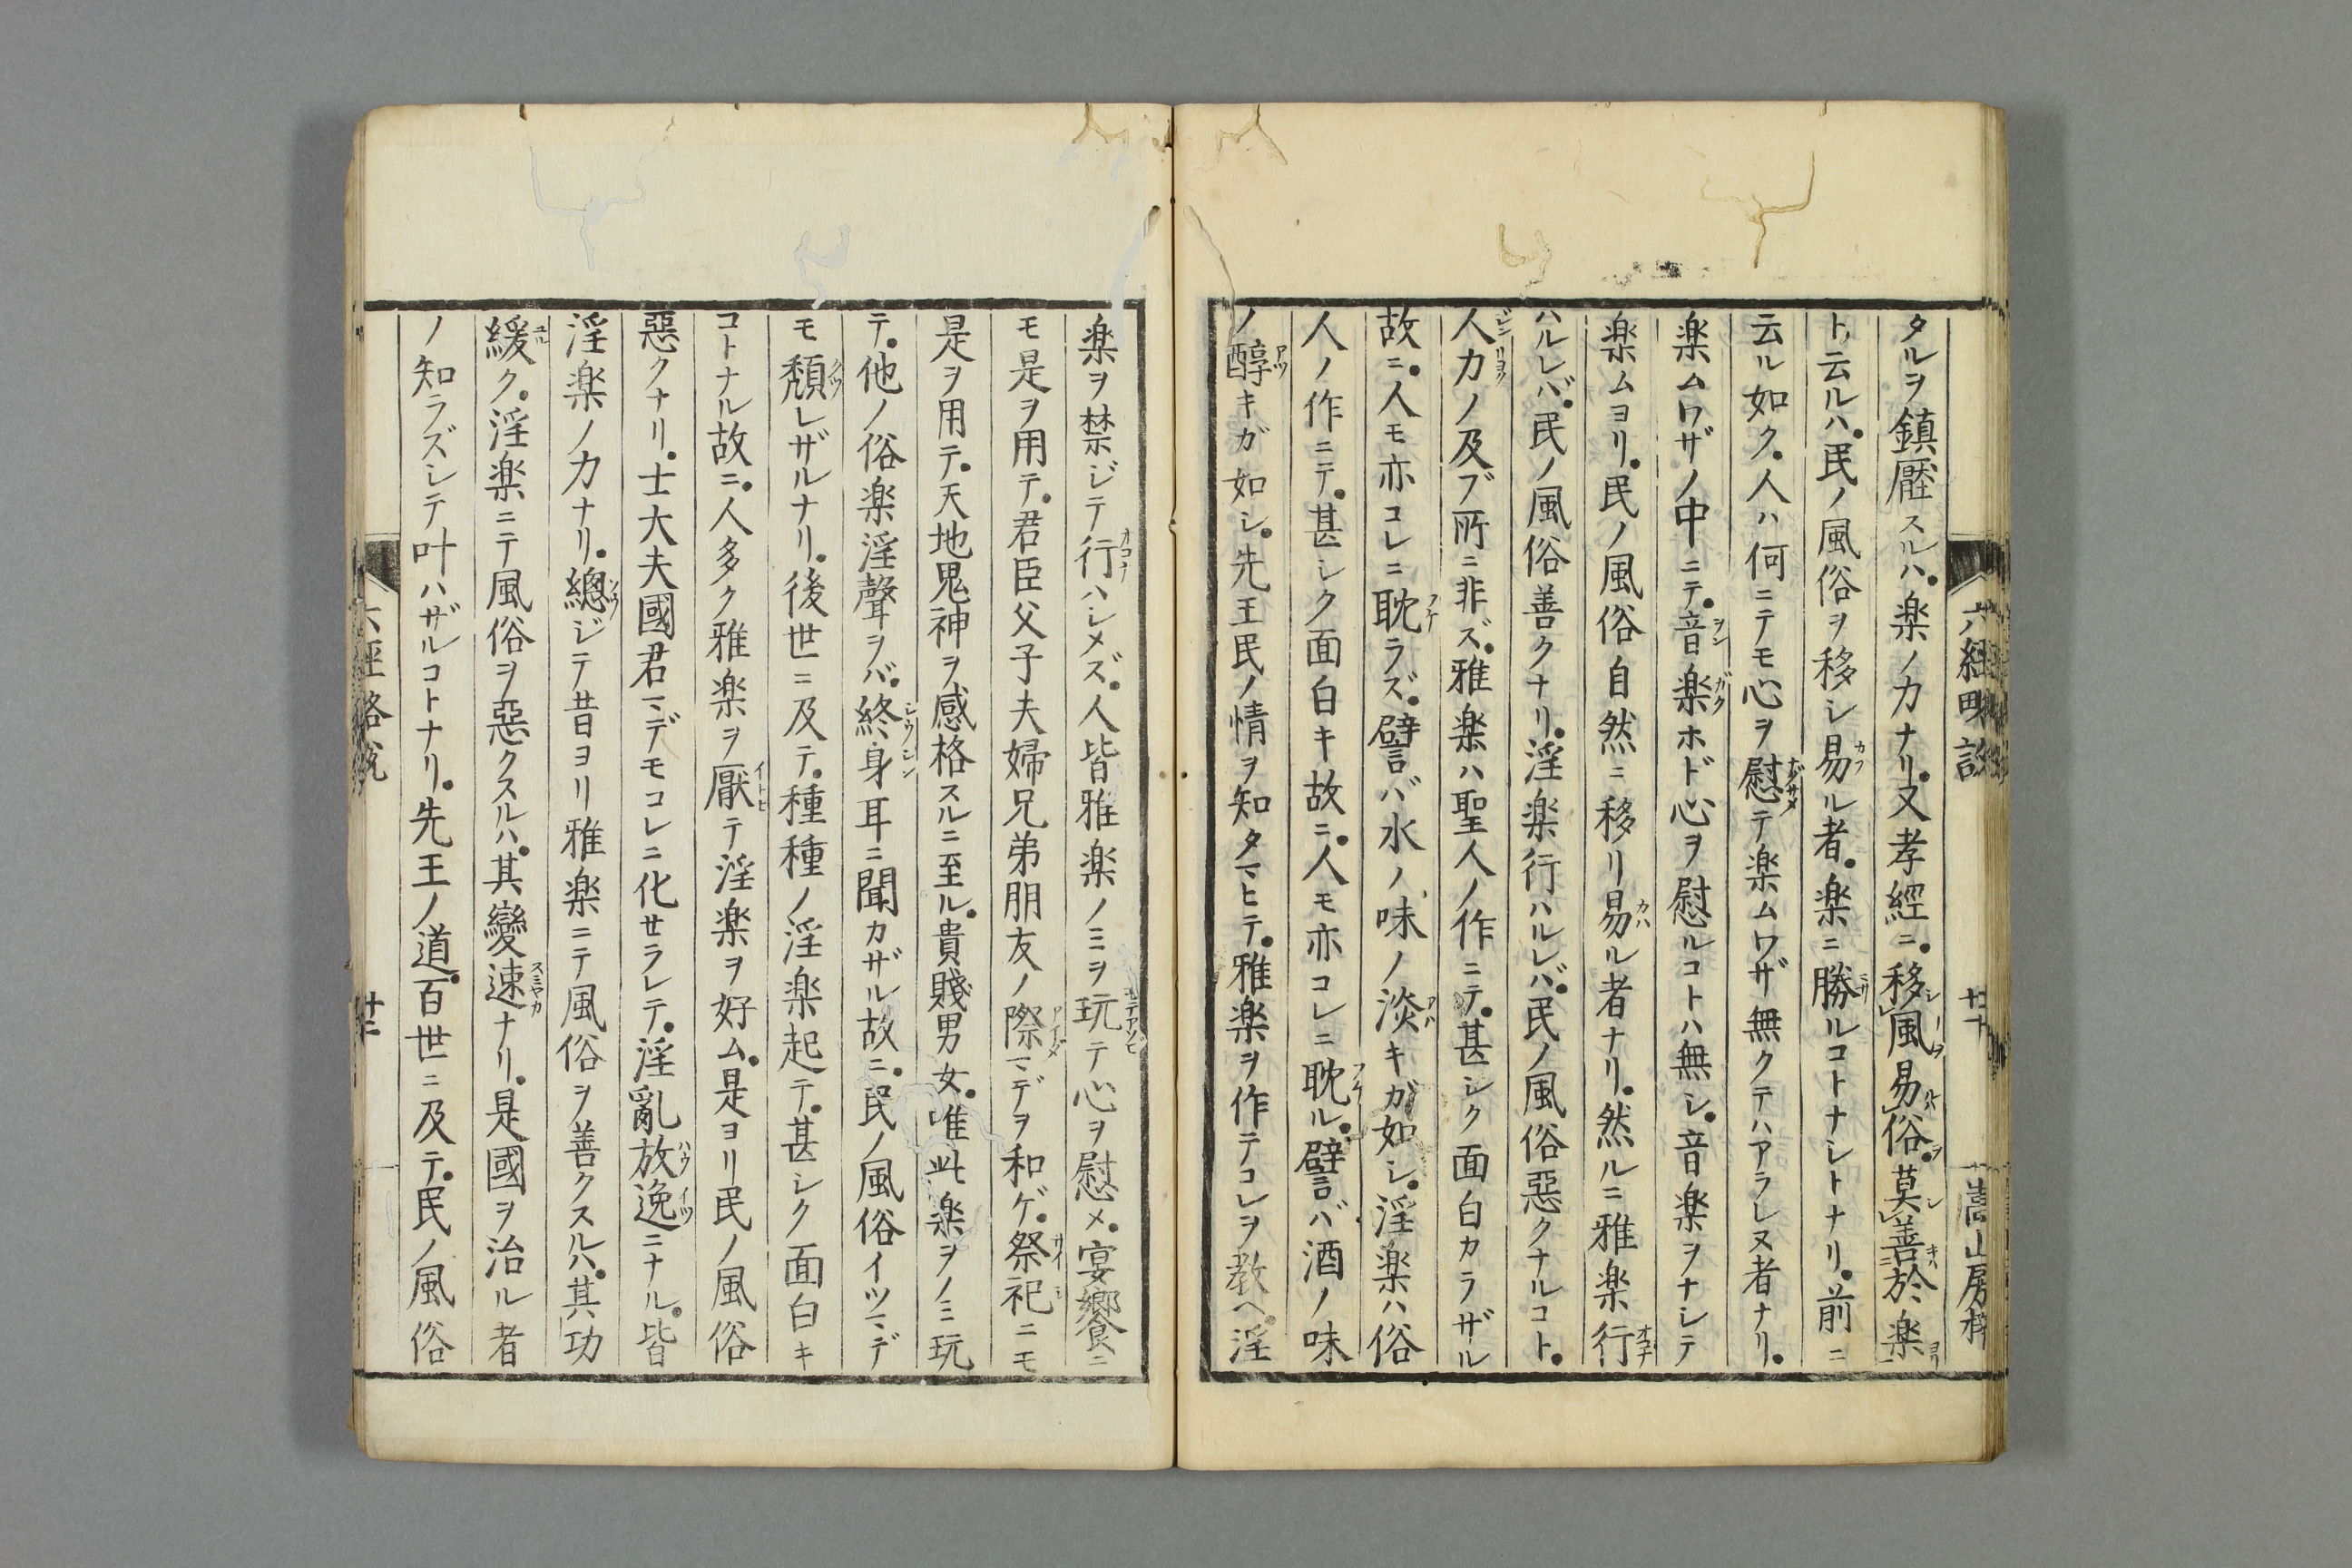 タルヲ鎮壓スルハ。楽ノカナリ。又孝經ニ。移風易俗。莫善於楽
ト云ルハ。民ノ風俗ヲ移シ易ル者。楽ニ勝ルコトナシトナリ。前ニ
云ル如ク。人ハ何ニテモ心ヲ慰テ楽ムワザ無クテハアラレヌ者ナリ。
楽ムワザノ中ニテ。音楽ホド心ヲ慰ルコトハ無シ。音楽ヲナシテ
楽ムヨリ。民ノ風俗自然ニ移リ易ル者ナリ。然ルニ雅楽行
ハルレバ。民ノ風俗善クナリ。淫楽行ハルレバ。民ノ風俗惡クナルコト。
人力ノ及ブ所ニ非ズ。雅楽ハ聖人ノ作ニテ。甚シク面白カラザル
故ニ。人モ亦コレニ耽ラズ。譬バ水ノ味ノ淡キガ如シ。淫楽ハ俗
人ノ作ニテ。甚シク面白キ故ニ。人モ亦コレニ耽ル。譬バ酒ノ味
ノ醇キガ如シ。先王民ノ情ヲ知タマヒテ。雅楽ヲ作テコレヲ教ヘ。淫
楽ヲ禁ジテ行ハシメズ。人皆雅楽ノミヲ玩テ心ヲ慰メ。宴饗ニ
モ是ヲ用テ。君臣父子夫婦兄弟朋友ノ際マデヲ和ゲ。祭祀ニモ
是ヲ用テ。天地鬼神ヲ感格スルニ至ル。貴賤男女。唯此楽ヲノミ玩
テ。他ノ俗楽淫聲ヲバ。終身耳ニ聞カザル故ニ。民ノ風俗イツマデ
モ頽レザルナリ。後世ニ及テ。種種ノ淫楽起テ。甚シク面白キ
コトナル故ニ。人多ク雅楽ヲ厭テ淫楽ヲ好ム。是ヨリ民ノ風俗
惡クナリ。士大夫國君マデモコレニ化サラレテ。淫亂放逸ニナル。皆
淫楽ノ力ナリ。總ジテ昔ヨリ雅楽ニテ風俗ヲ善クスルハ。其功
緩ク。淫楽ニテ風俗ヲ惡クスルハ。其變速ナリ。是國ヲ治ル者
ノ知ラズシテ叶ハザルコトナリ。先王ノ道。百世ニ及テ。民ノ風俗